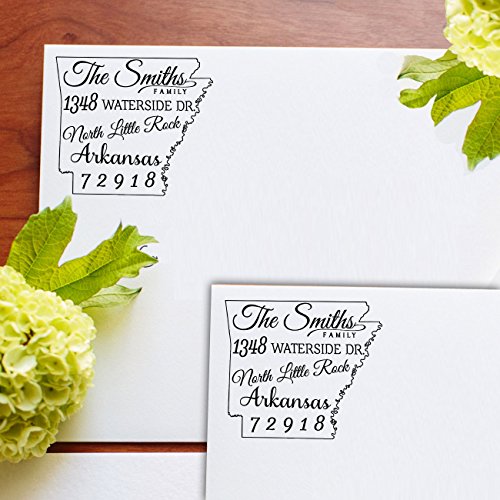 The Smiths
FAMILY
1348 WATERSIDE DR.
North Little Rock
Arkansas
72918
The Smiths
FAMILY
1348 WATERSIDE DR.
North Little Rock
Arkansas
72918